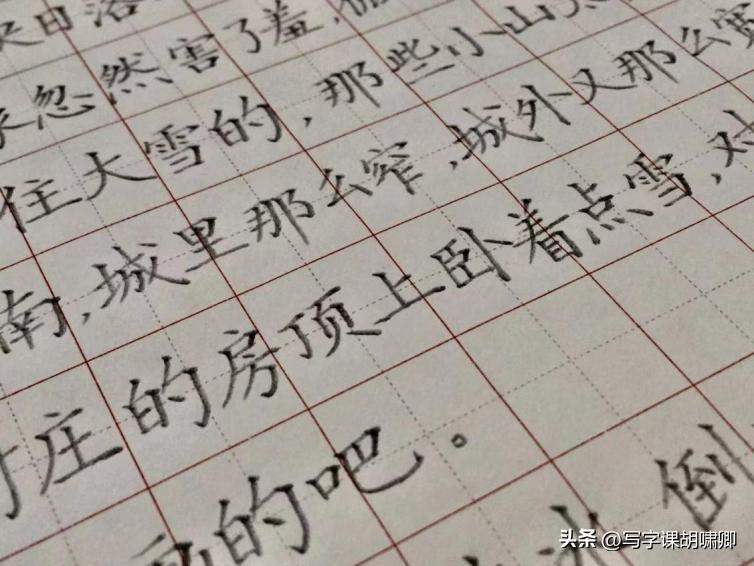 日落
忽然害了羞,
住大雪的,那些小山
南,城里那么窄,城外又那么宽
村庄的房顶上卧着点雪,对
的吧。
倒
头条 @写字课胡啸卿